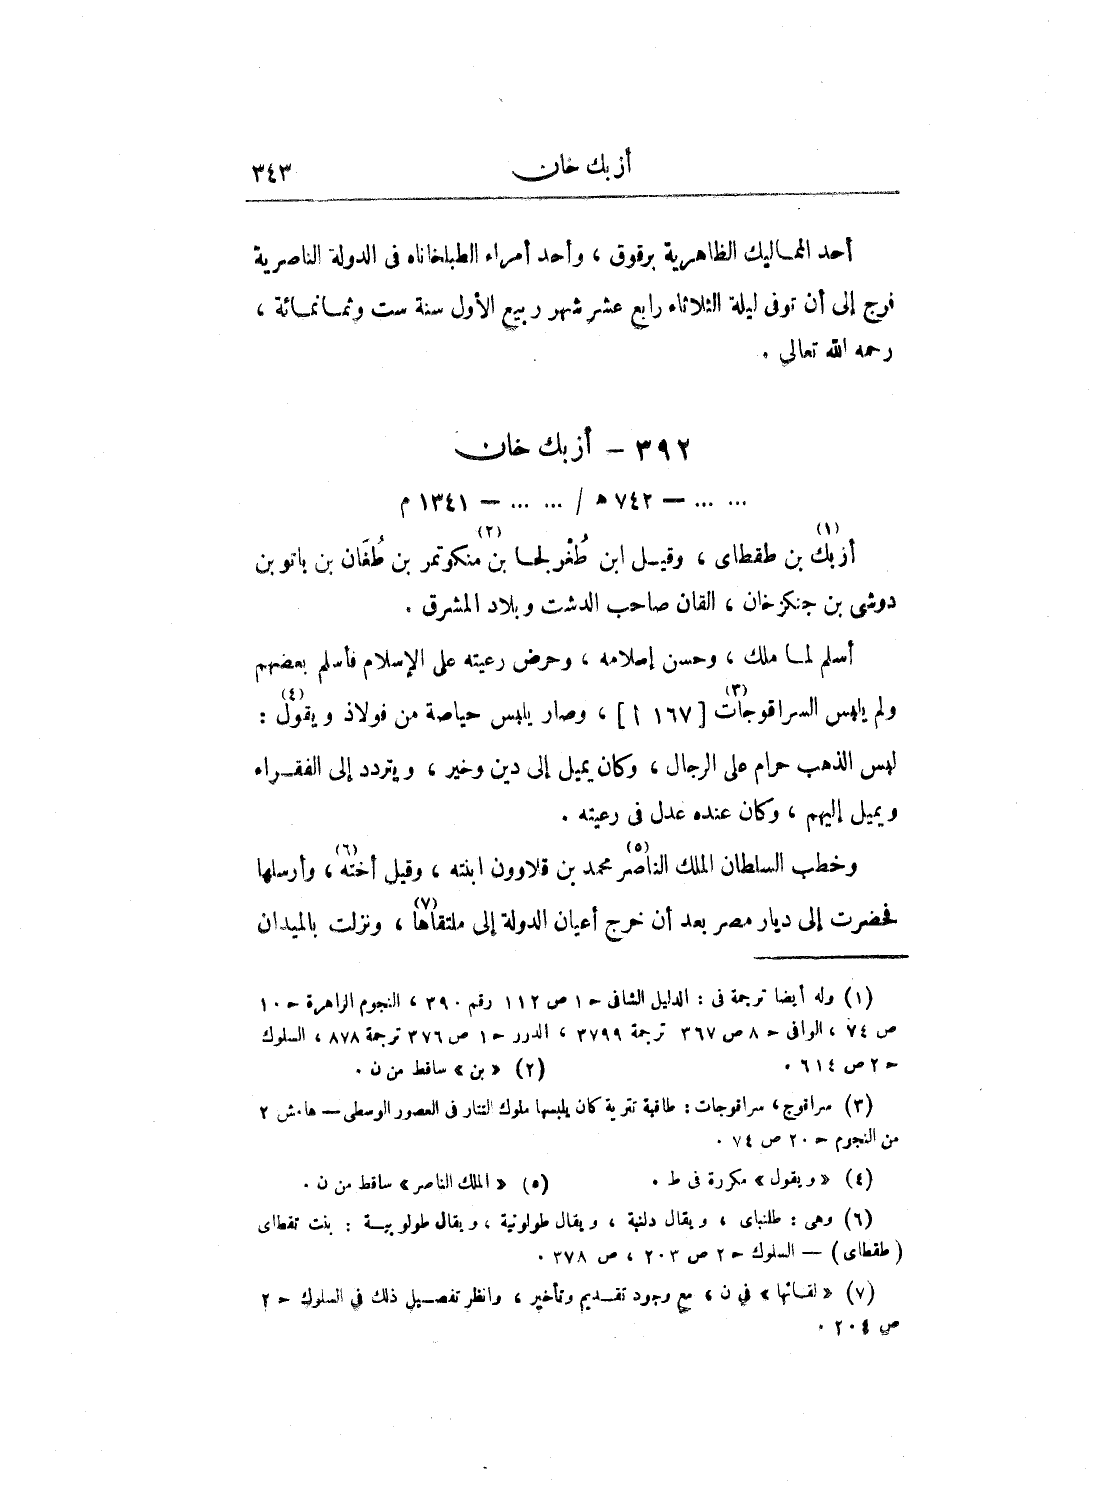 أزبك خان ٣٤٣
أحد المماليك الظاهرية برقوق ، وأحد أمراء الطبلخاناه فى الدولة الناصرية
فرج إلى أن توفى ليلة الثلاثاء رابع عشر شهر ربيع الأول سنة ست وثمانمائة ،
رحمه الله تعالى .
٣٩٢ – أزبك خان
... ... – ٧٤٢ ه / ... ... – ١٣٤١ م
أزبك (١) بن طقطاى ، وقيل ابن طُغْرلجا بن (٢) منكوتمر بن طُغَان بن باتو بن
دوشى بن جنكزخان ، القان صاحب الدشت وبلاد المشرق .
أسلم لما ملك ، وحسن إسلامه ، وحرض رعيته على الإسلام فأسلم بعضهم
ولم يلبس السراقوجات (٣) [ ١٦٧ أ ] ، وصار يلبس حياصة من فولاذ ويقول (٤) :
لبس الذهب حرام على الرجال ، وكان يميل إلى دين وخير ، ويتردد إلى الفقراء
ويميل إليهم ، وكان عنده عدل فى رعيته .
وخطب السلطان الملك الناصر (٥) محمد بن قلاوون ابنته ، وقيل أخته (٦) ، وأرسلها
فحضرت إلى ديار مصر بعد أن خرج أعيان الدولة إلى ملتقاها (٧) ، ونزلت بالميدان
(١) وله أيضا ترجمة فى : الدليل الشافى ح ١ ص ١١٢ رقم ٣٩٠ ، النجوم الزاهرة ح ١٠
ص ٧٤ ، الوافى ح ٨ ص ٣٦٧ ترجمة ٣٧٩٩ ، الدرر ح ١ ص ٣٧٦ ترجمة ٨٧٨ ، السلوك
ح ٢ ص ٦١٤ . (٢) « بن » ساقط من ن .
(٣) سراقوج ، سراقوجات : طاقية تترية كان يلبسها ملوك التتار فى العصور الوسطى – هامش ٢
من النجوم ح ٢٠ ص ٧٤ .
(٤) « ويقول » مكررة فى ط . (٥) « الملك الناصر » ساقط من ن .
(٦) وهى : طلنباى ، ويقال دلنبة ، ويقال طولونية ، ويقال طولوبية : بنت تقطاى
( طقطاى ) – السلوك ح ٢ ص ٢٠٣ ، ص ٣٧٨ .
(٧) « لقائها » في ن ، مع وجود تقديم وتأخير ، وانظر تفصيل ذلك في السلوك ح ٢
ص ٢٠٤ .